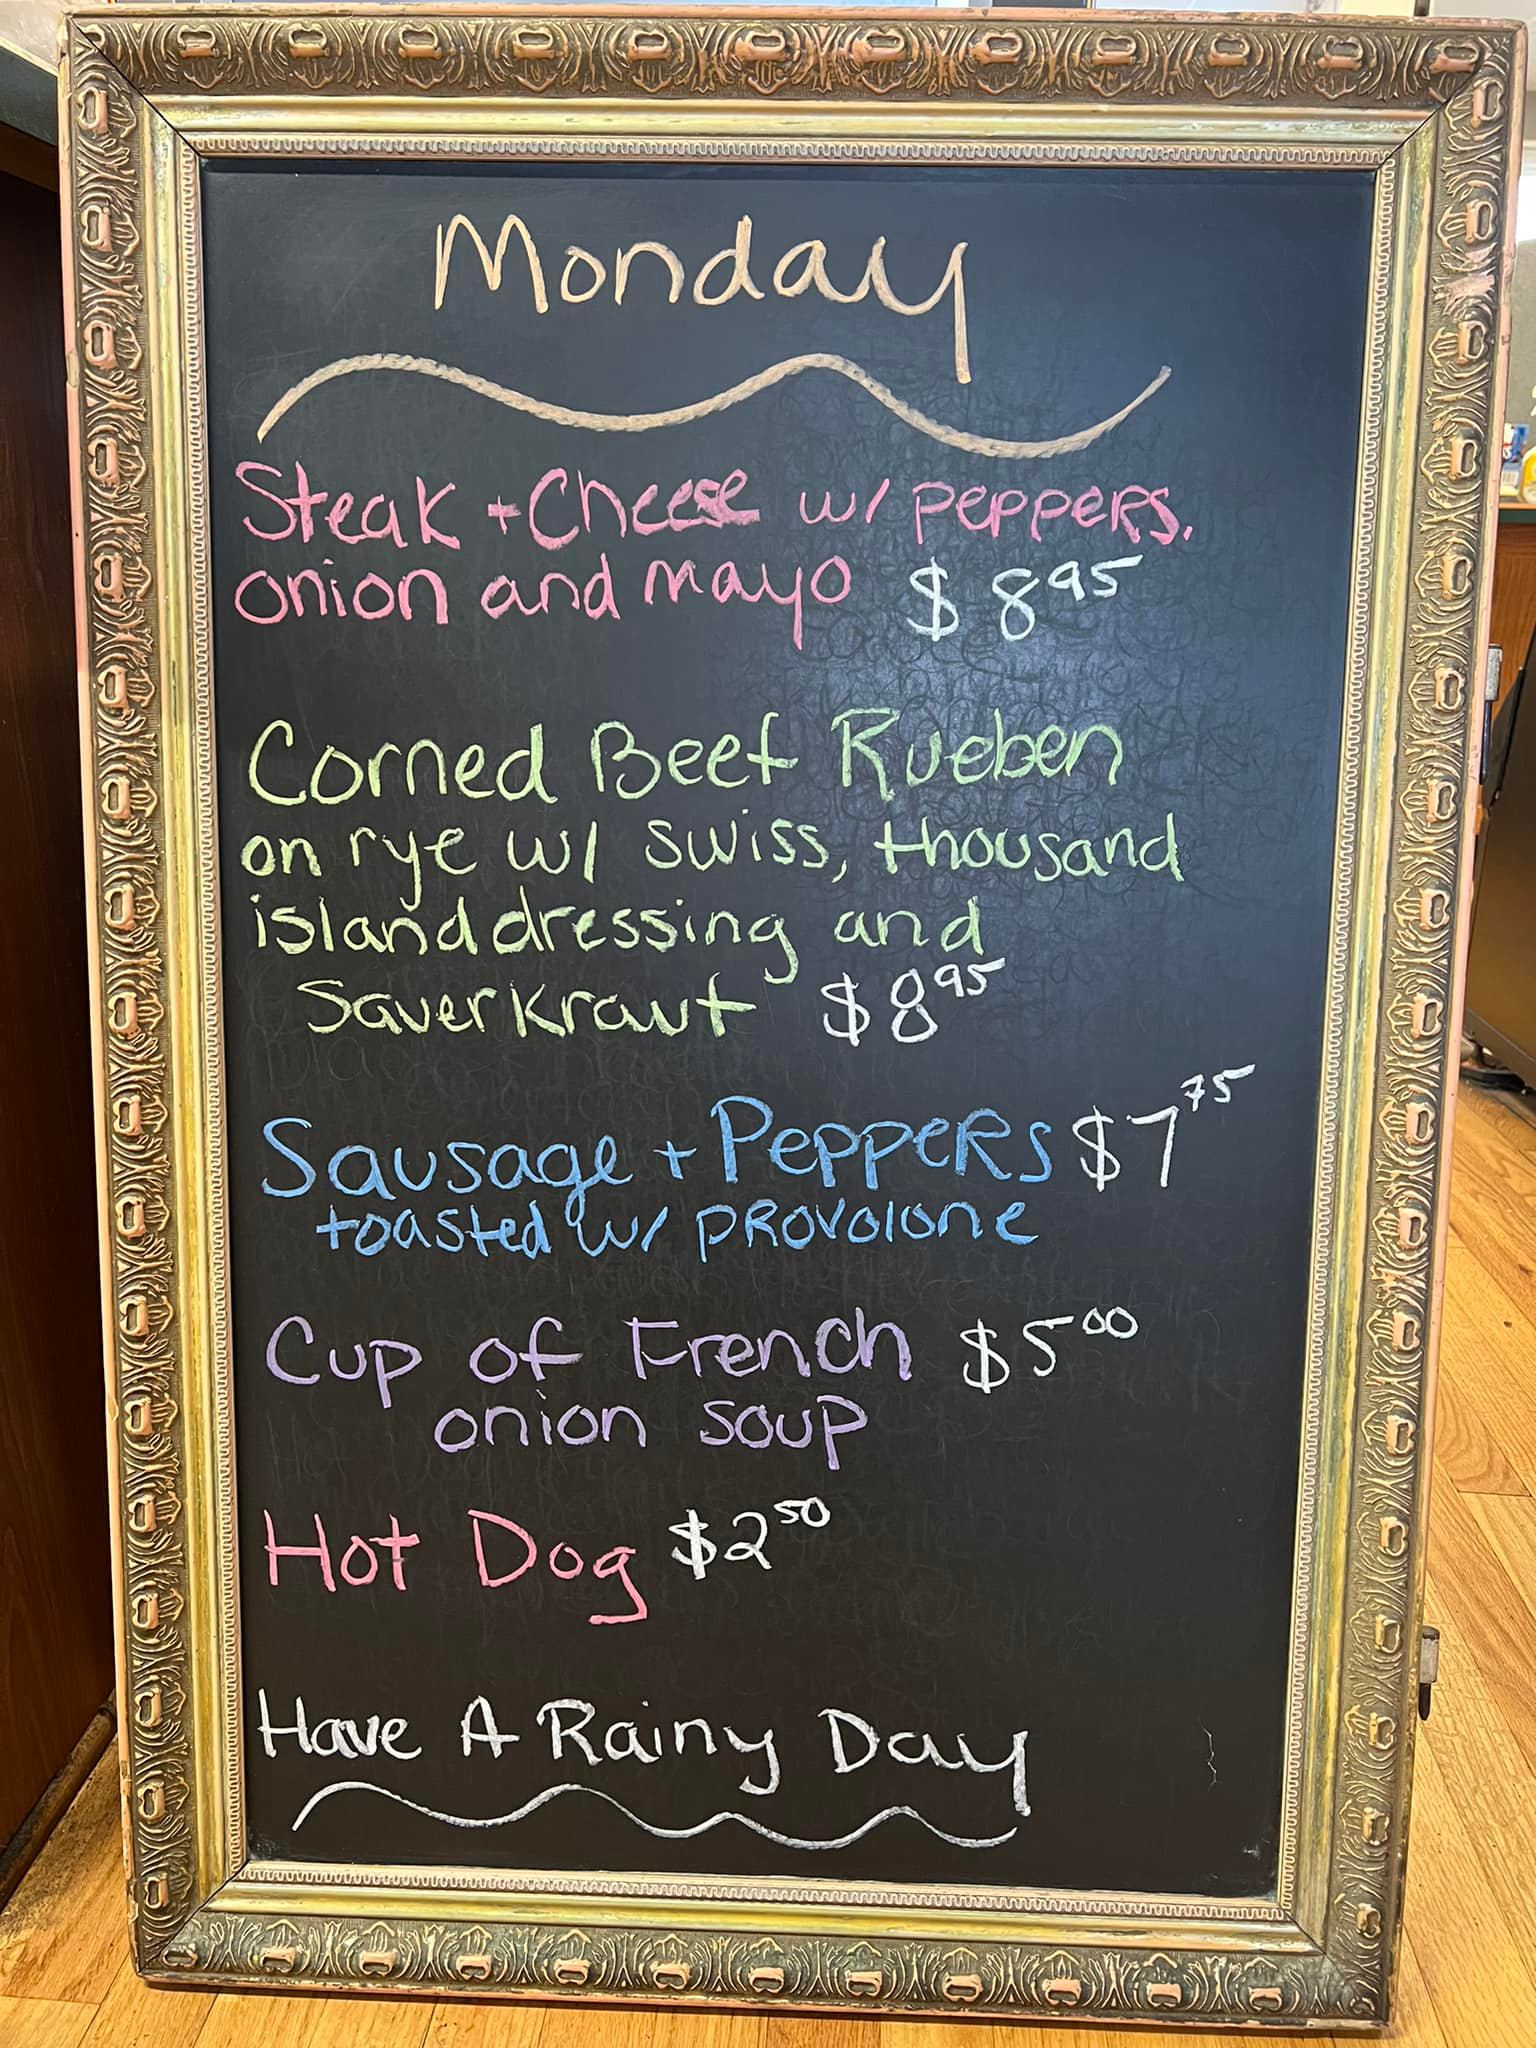 Monday
Steak + Cheese w/ peppers.
onion and mayo $8.95
Corned Beef Rueben
on rye w/ swiss, thousand
island dressing and
Sauerkraut $8.95
Sausage + Peppers $7.75
toasted w/ provolone
Cup of French $5.00
onion soup
Hot Dog $2.50
Have A Rainy Day